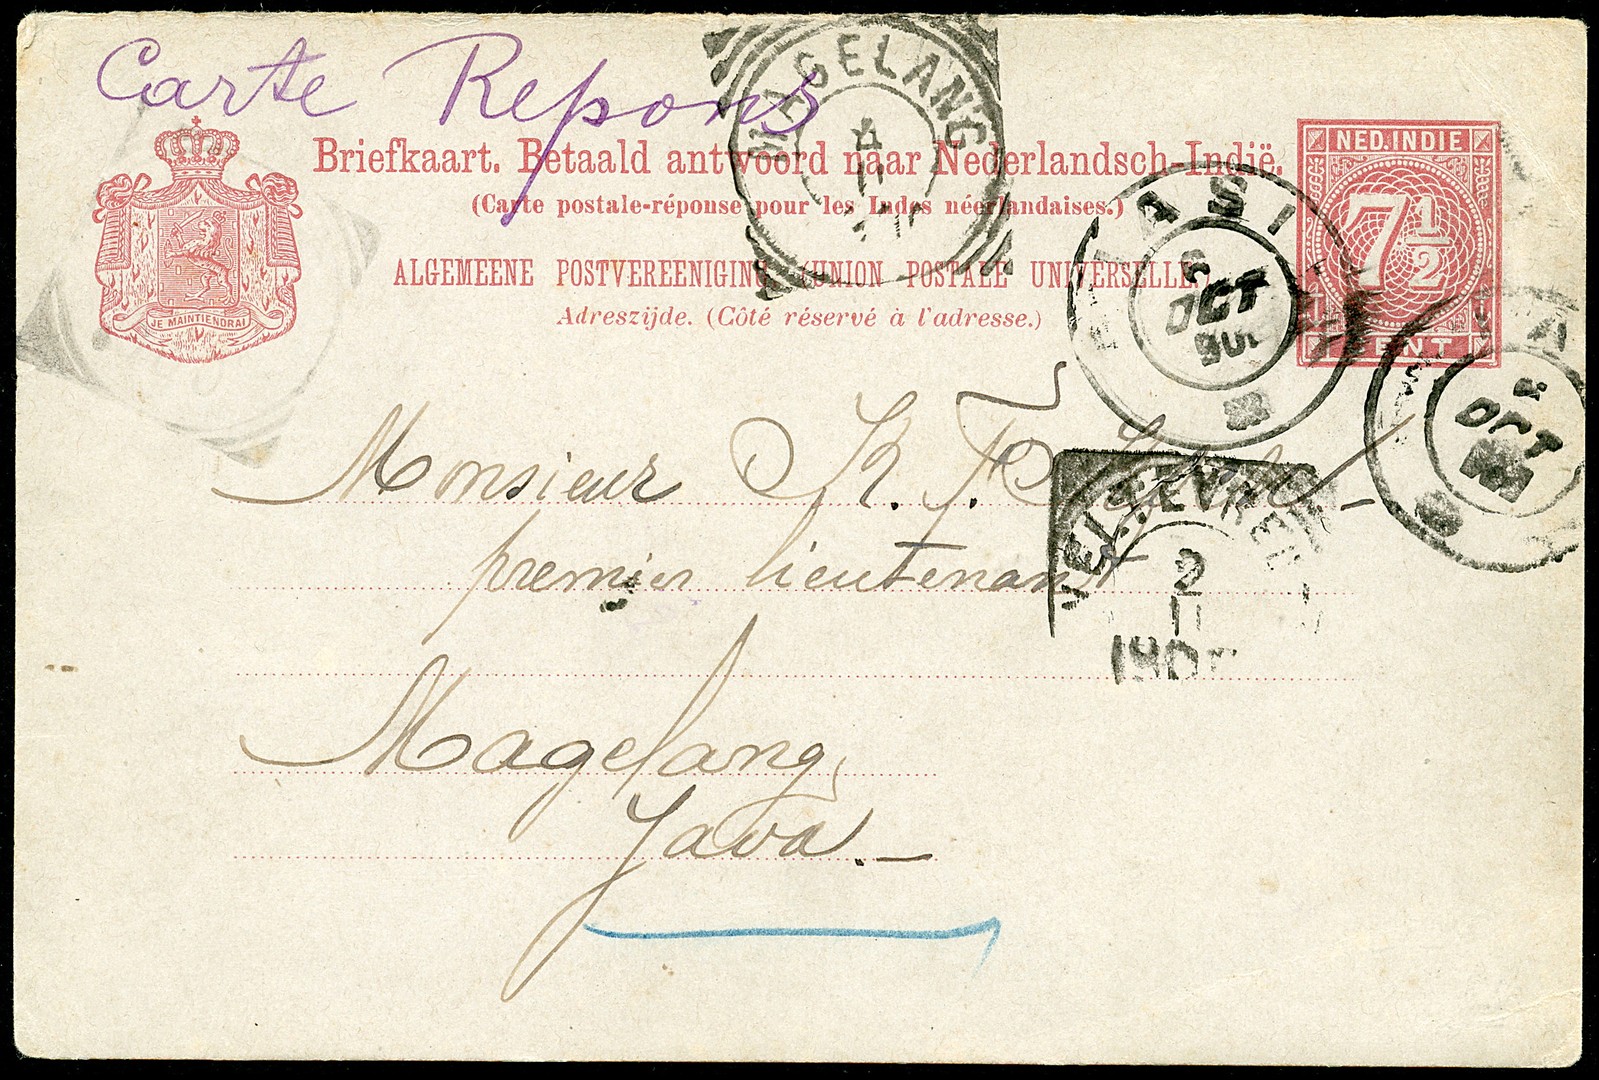 Carte Repons
MAGELANG
4
11
Briefkaart. Betaald antwoord naar Nederlandsch-Indië.
(Carte postale-réponse pour les Indes néerlandaises.)
ALGEMEENE POSTVEREENIGING (UNION POSTALE UNIVERSELLE)
Adreszijde. (Côté réservé à l'adresse.)
JE MAINTIENDRAI
NED. INDIE
7 1/2
CENT
IASI
OCT
OCT
Monsieur K. F.
premier lieutenant
WELTEVREDEN
2
11
Magelang,
Java.